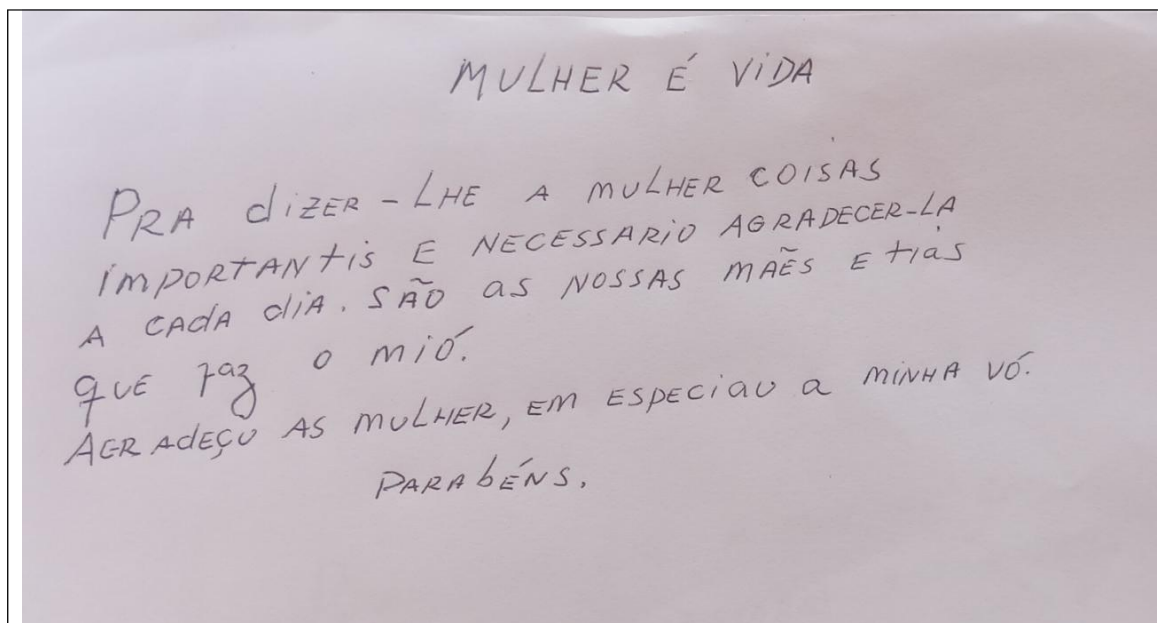 MULHER É ViDA
PRA diZER-LHE A MULHER COISAS
iMPORTANtis E NECESSARiO AGRADECER-LA
A CAdA diA. SÃO as NOSSAS MÃES E tias
que faz o mió.
AGRAdEÇU AS MULHER, EM ESPECiau a MINHA VÓ.
PARAbÉNS.